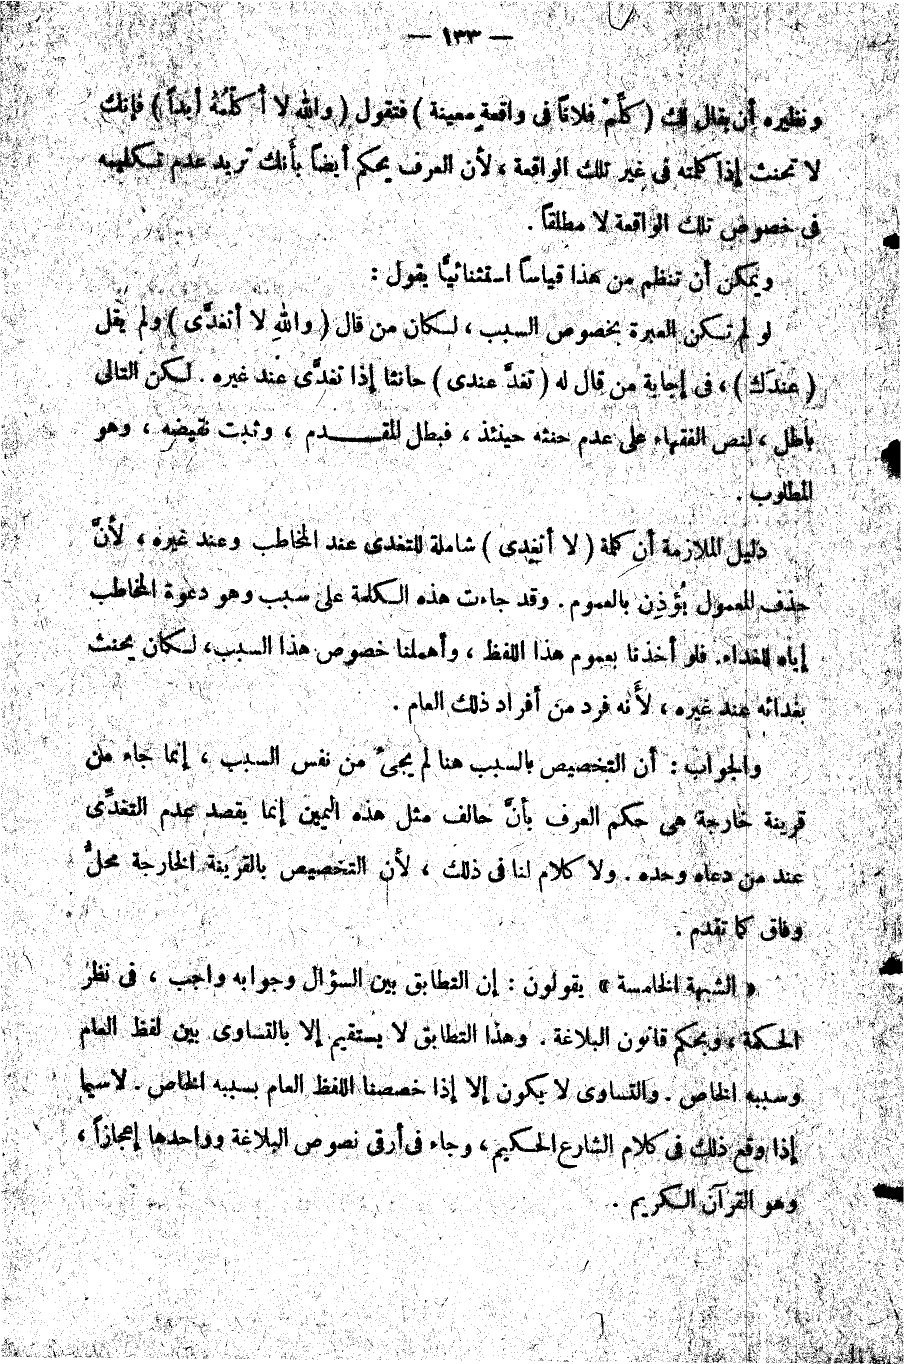 — ١٣٣ —
ونظيره أن يقال لك ( كلِّمْ فلاناً فى واقعةٍ معينة ) فتقول ( والله لا أُكلِّمُهُ أبداً ) فإنك
لا تحنث إذا كلمته فى غير تلك الواقعة ، لأن العرف يحكم أيضاً بأَنك تريد عدم تكليمه
فى خصوص تلك الواقعة لا مطلقاً .
ويمكن أن تنظم من هذا قياساً استثنائيًّا يقول :
لو لم تكن العبرة بخصوص السبب ، لكان من قال ( واللهِ لا أتغدَّى ) ولم يقل
( عندَك ) ، فى إجابة من قال له ( تغدَّ عندى ) حانثا إذا تغدَّى عند غيره . لكن التالى
باطل ، لنص الفقهاء على عدم حنثه حينئذ ، فبطل المقدم ، وثبت نقيضه ، وهو
المطلوب .
دليل الملازمة أن كلمة ( لا أتغدى ) شاملة للتغدى عند المخاطب وعند غيره ، لأنَّ
حذف المعمول يُؤذِن بالعموم . وقد جاءت هذه الكلمة على سبب وهو دعوة المخاطب
إياه للغداء. فلو أخذنا بعموم هذا اللفظ ، وأهملنا خصوص هذا السبب، لكان يحنث
بغدائه عند غيره ، لأَنه فرد من أفراد ذلك العام .
والجواب : أن التخصيص بالسبب هنا لم يجئ من نفس السبب ، إنما جاء من
قرينة خارجة هى حكم العرف بأنَّ حالف مثل هذه اليمين إنما يقصد عدم التغدِّى
عند من دعاه وحده . ولا كلام لنا فى ذلك ، لأن التخصيص بالقرينة الخارجة محلُّ
وفاق كما تقدم .
« الشبهة الخامسة » يقولون : إن التطابق بين السؤال وجوابه واجب ، فى نظر
الحكمة ، وبحكم قانون البلاغة . وهذا التطابق لا يستقيم إلا بالتساوى بين لفظ العام
وسببه الخاص . والتساوى لا يكون إلا إذا خصصنا اللفظ العام بسببه الخاص . لاسيما
إذا وقع ذلك فى كلام الشارع الحكيم ، وجاء فى أرقى نصوص البلاغة وواحدها إعجازاً ،
وهو القرآن الكريم .